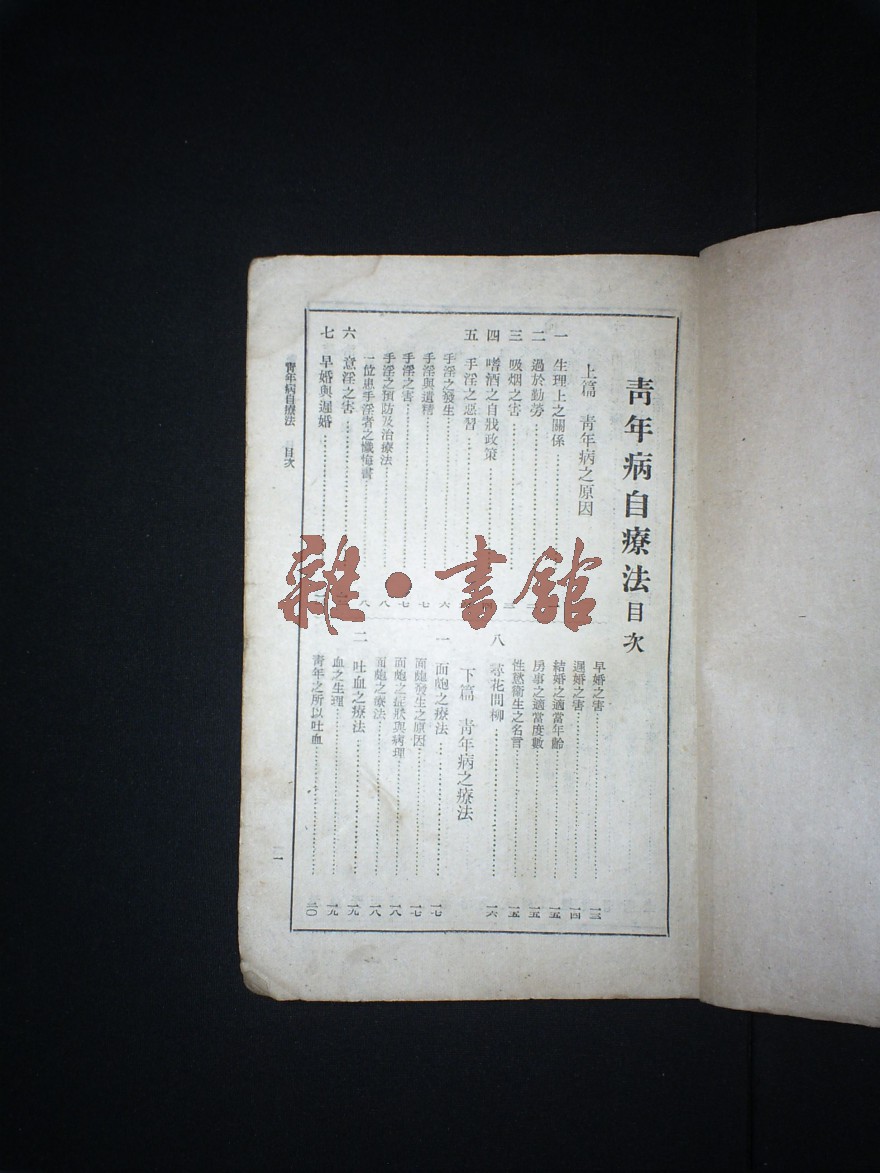 青年病自療法目次
上篇 青年病之原因
一 生理上之關係
二 過於勤勞
三 吸烟之害
四 嗜酒之自戕政策
五 手淫之惡習
手淫之發生 六
手淫與遺精 七
手淫之害 七
手淫之預防及治療法 八
一位患手淫者之懺悔書 八
六 意淫之害
七 早婚與遲婚
早婚之害 一三
遲婚之害 一四
結婚之適當年齡 一五
房事之適當度數 一五
性慾衛生之名言 一五
八 尋花問柳 一六
下篇 青年病之療法
一 面皰之療法 一七
面皰發生之原因 一七
面皰之症狀與病理 一八
面皰之療法 一八
二 吐血之療法 一九
血之生理 一九
青年之所以吐血 二〇
青年病自療法 目次
一
雜·書館